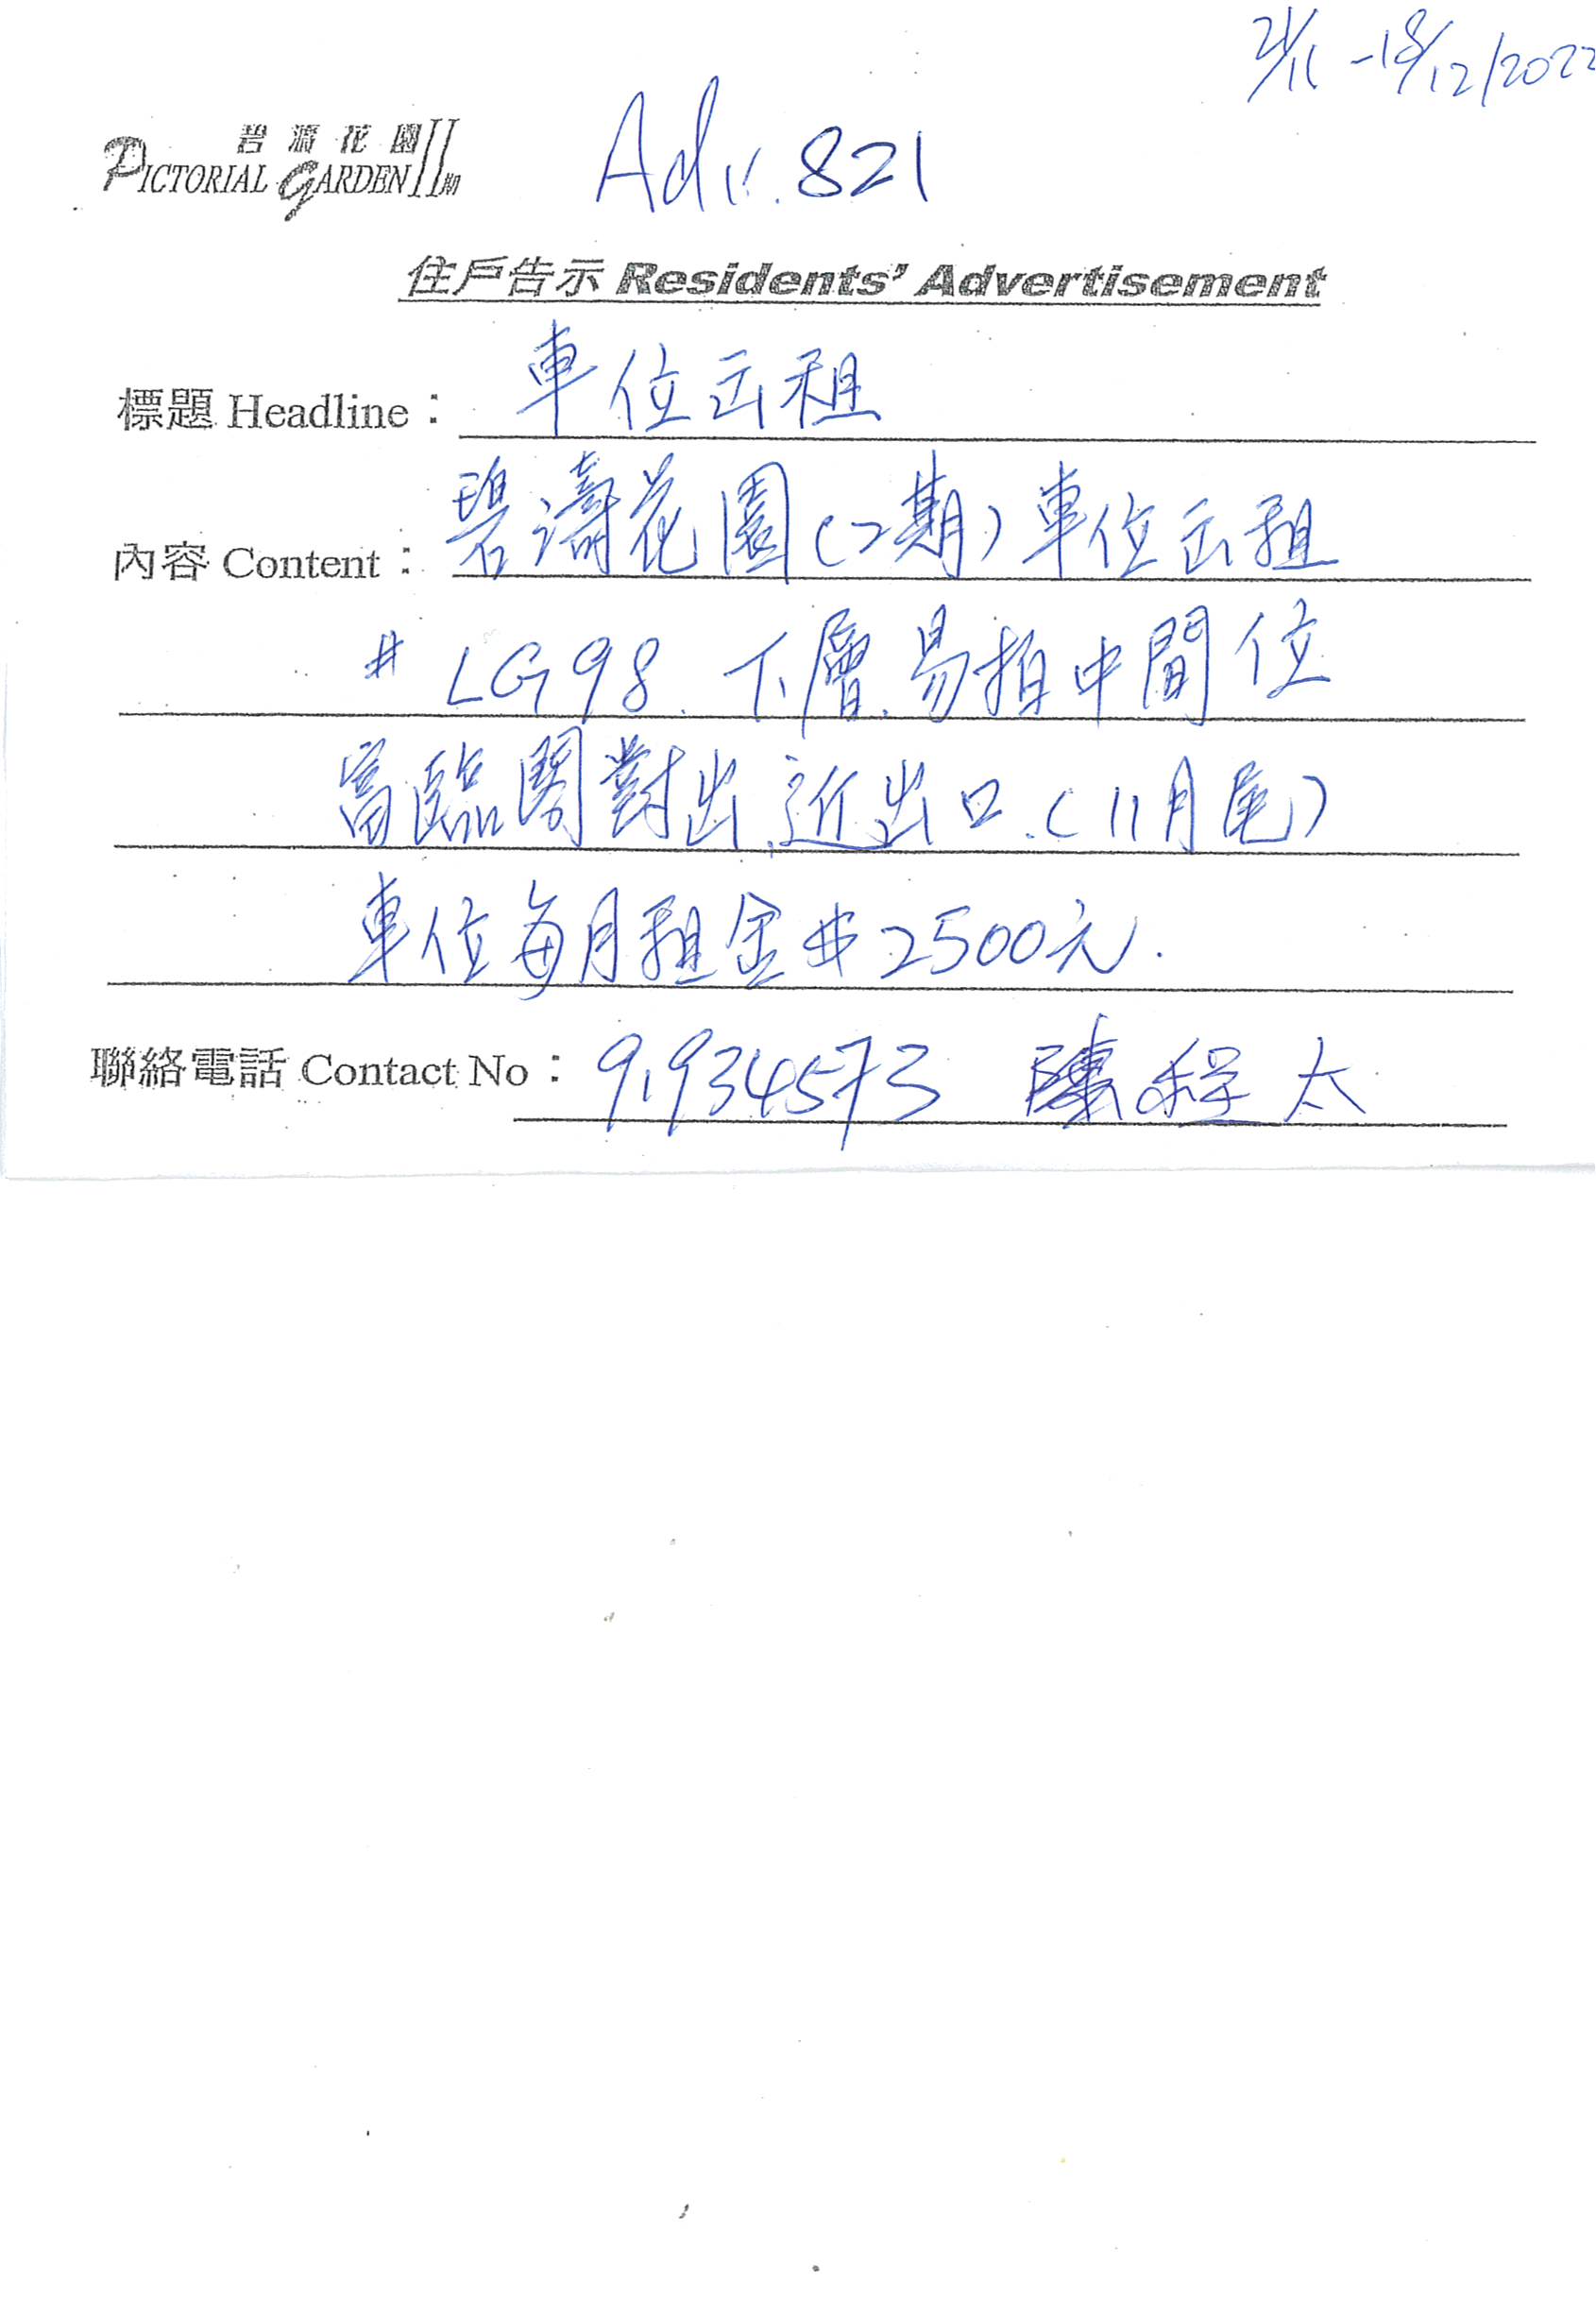 21/11 - 18/12/2022
碧濤花園
PICTORIAL GARDEN II 期
Adv. 821
住戶告示 Residents' Advertisement
標題 Headline： 車位出租
內容 Content： 碧濤花園(2期)車位出租
# LG98. 下層.易泊中間位
富臨閣對出.近出口.(11月尾)
車位每月租金$2500元.
聯絡電話 Contact No： 91934573 陳程太